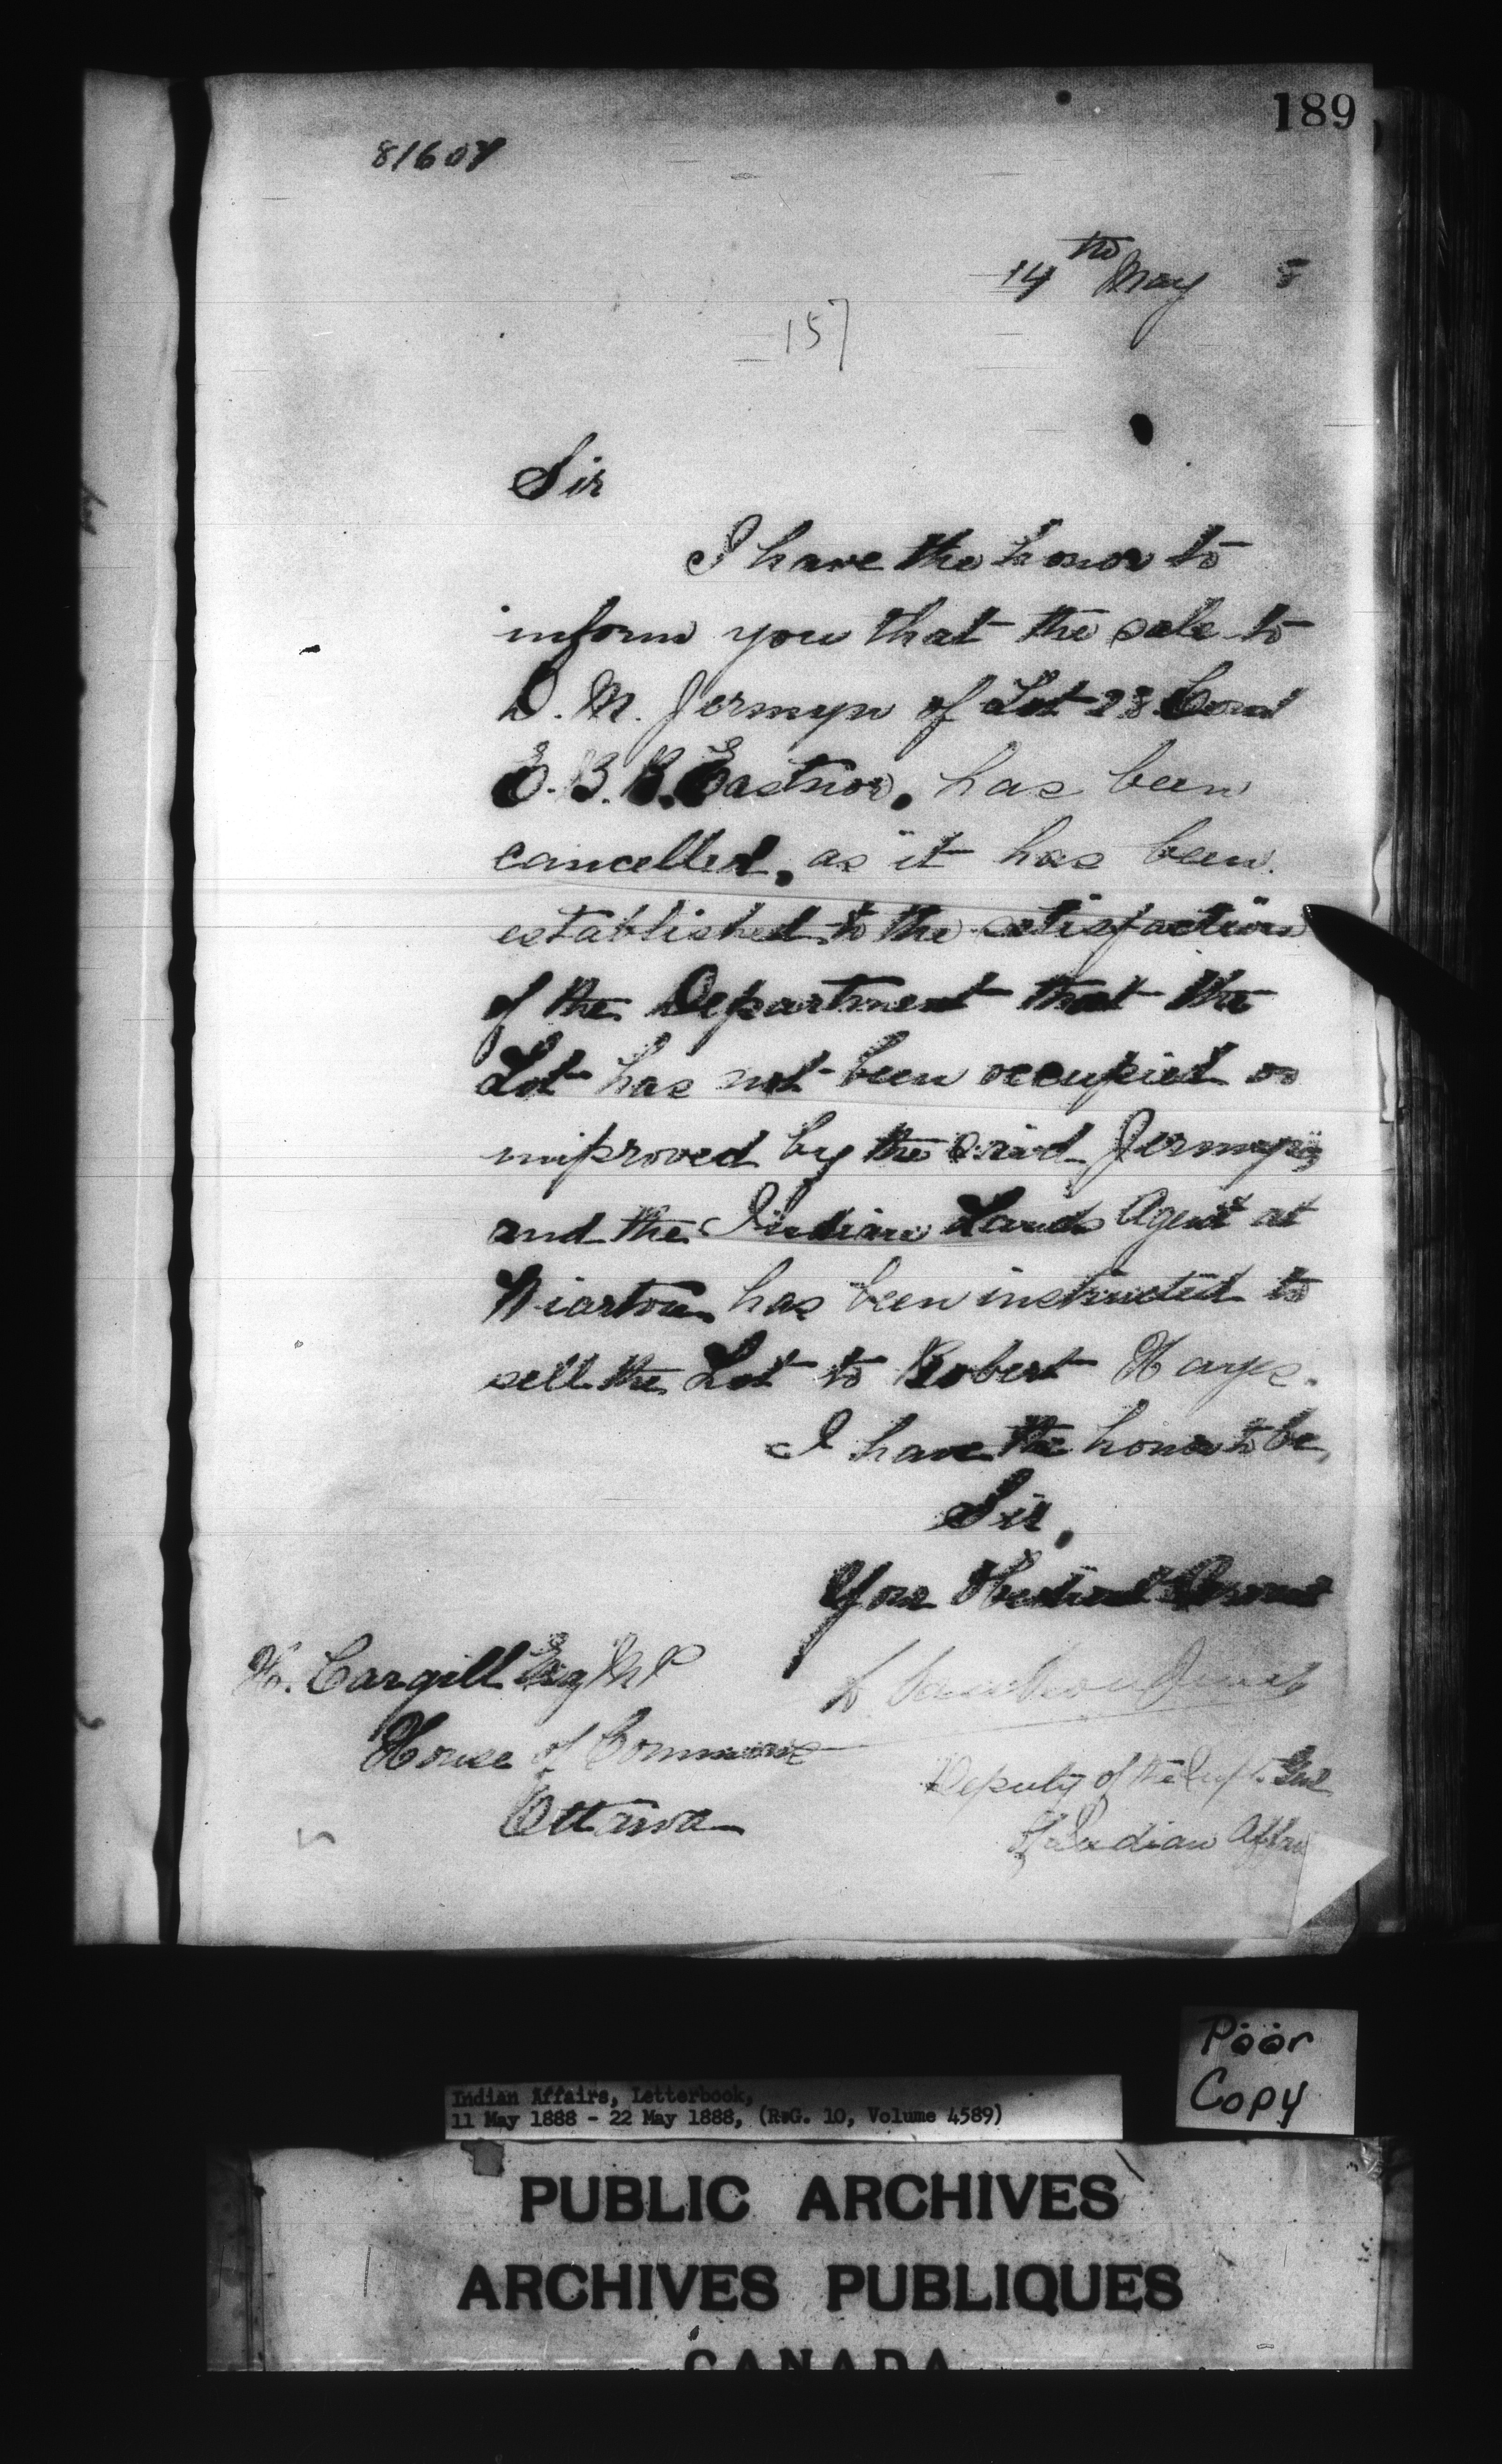 189
81604
14th May 8
157
Sir
I have the honor to
inform you that the sale to
D. M. Jermyn of Lot 28 Cond
E. B. R. Eastnor, has been
cancelled, as it has been
established to the satisfaction
of the Department that the
Lot has not been occupied or
improved by the said Jermyn,
and the Indian Lands Agent at
Wiarton has been instructed to
sell the Lot to Robert Hays.
I have the honor to be,
Sir,
Your Obedient Servant
H. Cargill Esq M P
House of Commons
Ottawa
Deputy of the Supt. Genl
of Indian Affairs
Poor
Copy
Indian Affairs, Letterbook,
11 May 1888 - 22 May 1888, (R.G. 10, Volume 4589)
PUBLIC ARCHIVES
ARCHIVES PUBLIQUES
CANADA